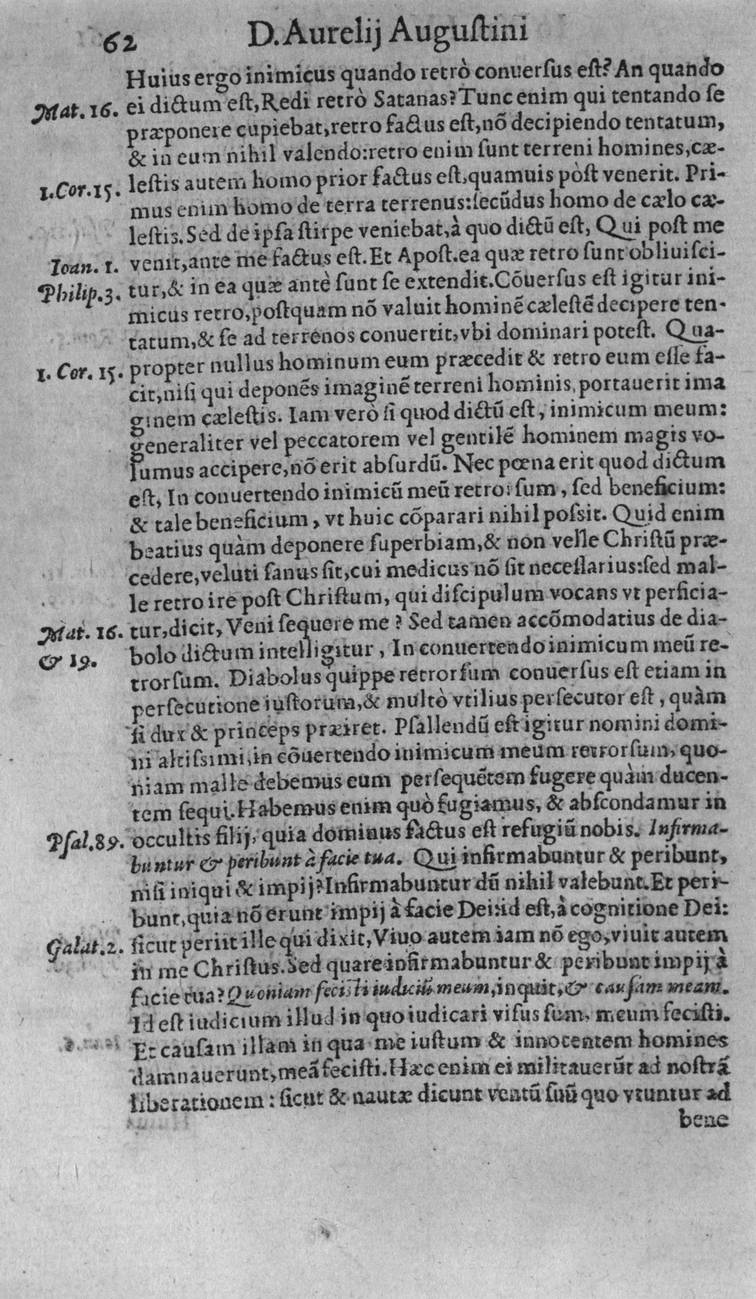 62 D. Aurelij Auguſtini
Huius ergo inimicus quando retrò conuerſus eſt? An quando
Mat. 16. ei dictum eſt, Redi retrò Satanas? Tunc enim qui tentando ſe
præponere cupiebat, retro factus eſt, nō decipiendo tentatum,
& in eum nihil valendo: retro enim ſunt terreni homines, cæ-
1. Cor. 15. leſtis autem homo prior factus eſt, quamuis pòſt venerit. Pri-
mus enim homo de terra terrenus: ſecūdus homo de cælo cæ-
leſtis. Sed de ipſa ſtirpe veniebat, à quo dictū eſt, Qui poſt me
Ioan. 1. venit, ante me factus eſt. Et Apoſt. ea quæ retro ſunt obliuiſci-
Philip. 3. tur, & in ea quæ antè ſunt ſe extendit. Cōuerſus eſt igitur ini-
micus retro, poſtquam nō valuit hominē cæleſtē decipere ten-
tatum, & ſe ad terrenos conuertit, vbi dominari poteſt. Qua-
1. Cor. 15. propter nullus hominum eum præcedit & retro eum eſſe fa-
cit, niſi qui deponēs imaginē terreni hominis, portauerit ima
ginem cæleſtis. Iam verò ſi quod dictū eſt, inimicum meum:
generaliter vel peccatorem vel gentilē hominem magis vo-
lumus accipere, nō erit abſurdū. Nec pœna erit quod dictum
eſt, In conuertendo inimicū meū retrorſum, ſed beneficium:
& tale beneficium, vt huic cōparari nihil poſsit. Quid enim
beatius quàm deponere ſuperbiam, & non velle Chriſtū præ-
cedere, veluti ſanus ſit, cui medicus nō ſit neceſſarius: ſed mal-
le retro ire poſt Chriſtum, qui diſcipulum vocans vt perficia-
Mat. 16. tur, dicit, Veni ſequere me? Sed tamen accōmodatius de dia-
& 19. bolo dictum intelligitur, In conuertendo inimicum meū re-
trorſum. Diabolus quippe retrorſum conuerſus eſt etiam in
perſecutione iuſtorum, & multò vtilius perſecutor eſt, quàm
ſi dux & princeps præiret. Pſallendū eſt igitur nomini domi-
ni altiſsimi, in cōuertendo inimicum meum retrorſum, quo-
niam malle debemus eum perſequētem fugere quàm ducen-
tem ſequi. Habemus enim quò fugiamus, & abſcondamur in
Pſal. 89. occultis filij, quia dominus factus eſt refugiū nobis. Infirma-
buntur & peribunt à facie tua. Qui infirmabuntur & peribunt,
niſi iniqui & impij? Infirmabuntur dū nihil valebunt. Et peri-
bunt, quia nō erunt impij à facie Dei: id eſt, à cognitione Dei:
Galat. 2. ſicut periit ille qui dixit, Viuo autem iam nō ego, viuit autem
in me Chriſtus. Sed quare infirmabuntur & peribunt impij à
facie tua? Quoniam feciſti iudiciū meum, inquit, & cauſam meam.
Id eſt iudicium illud in quo iudicari viſus ſum, meum feciſti.
Et cauſam illam in qua me iuſtum & innocentem homines
damnauerunt, meā feciſti. Hæc enim ei militauerūt ad noſtrā
liberationem: ſicut & nautæ dicunt ventū ſuū quo vtuntur ad
bene